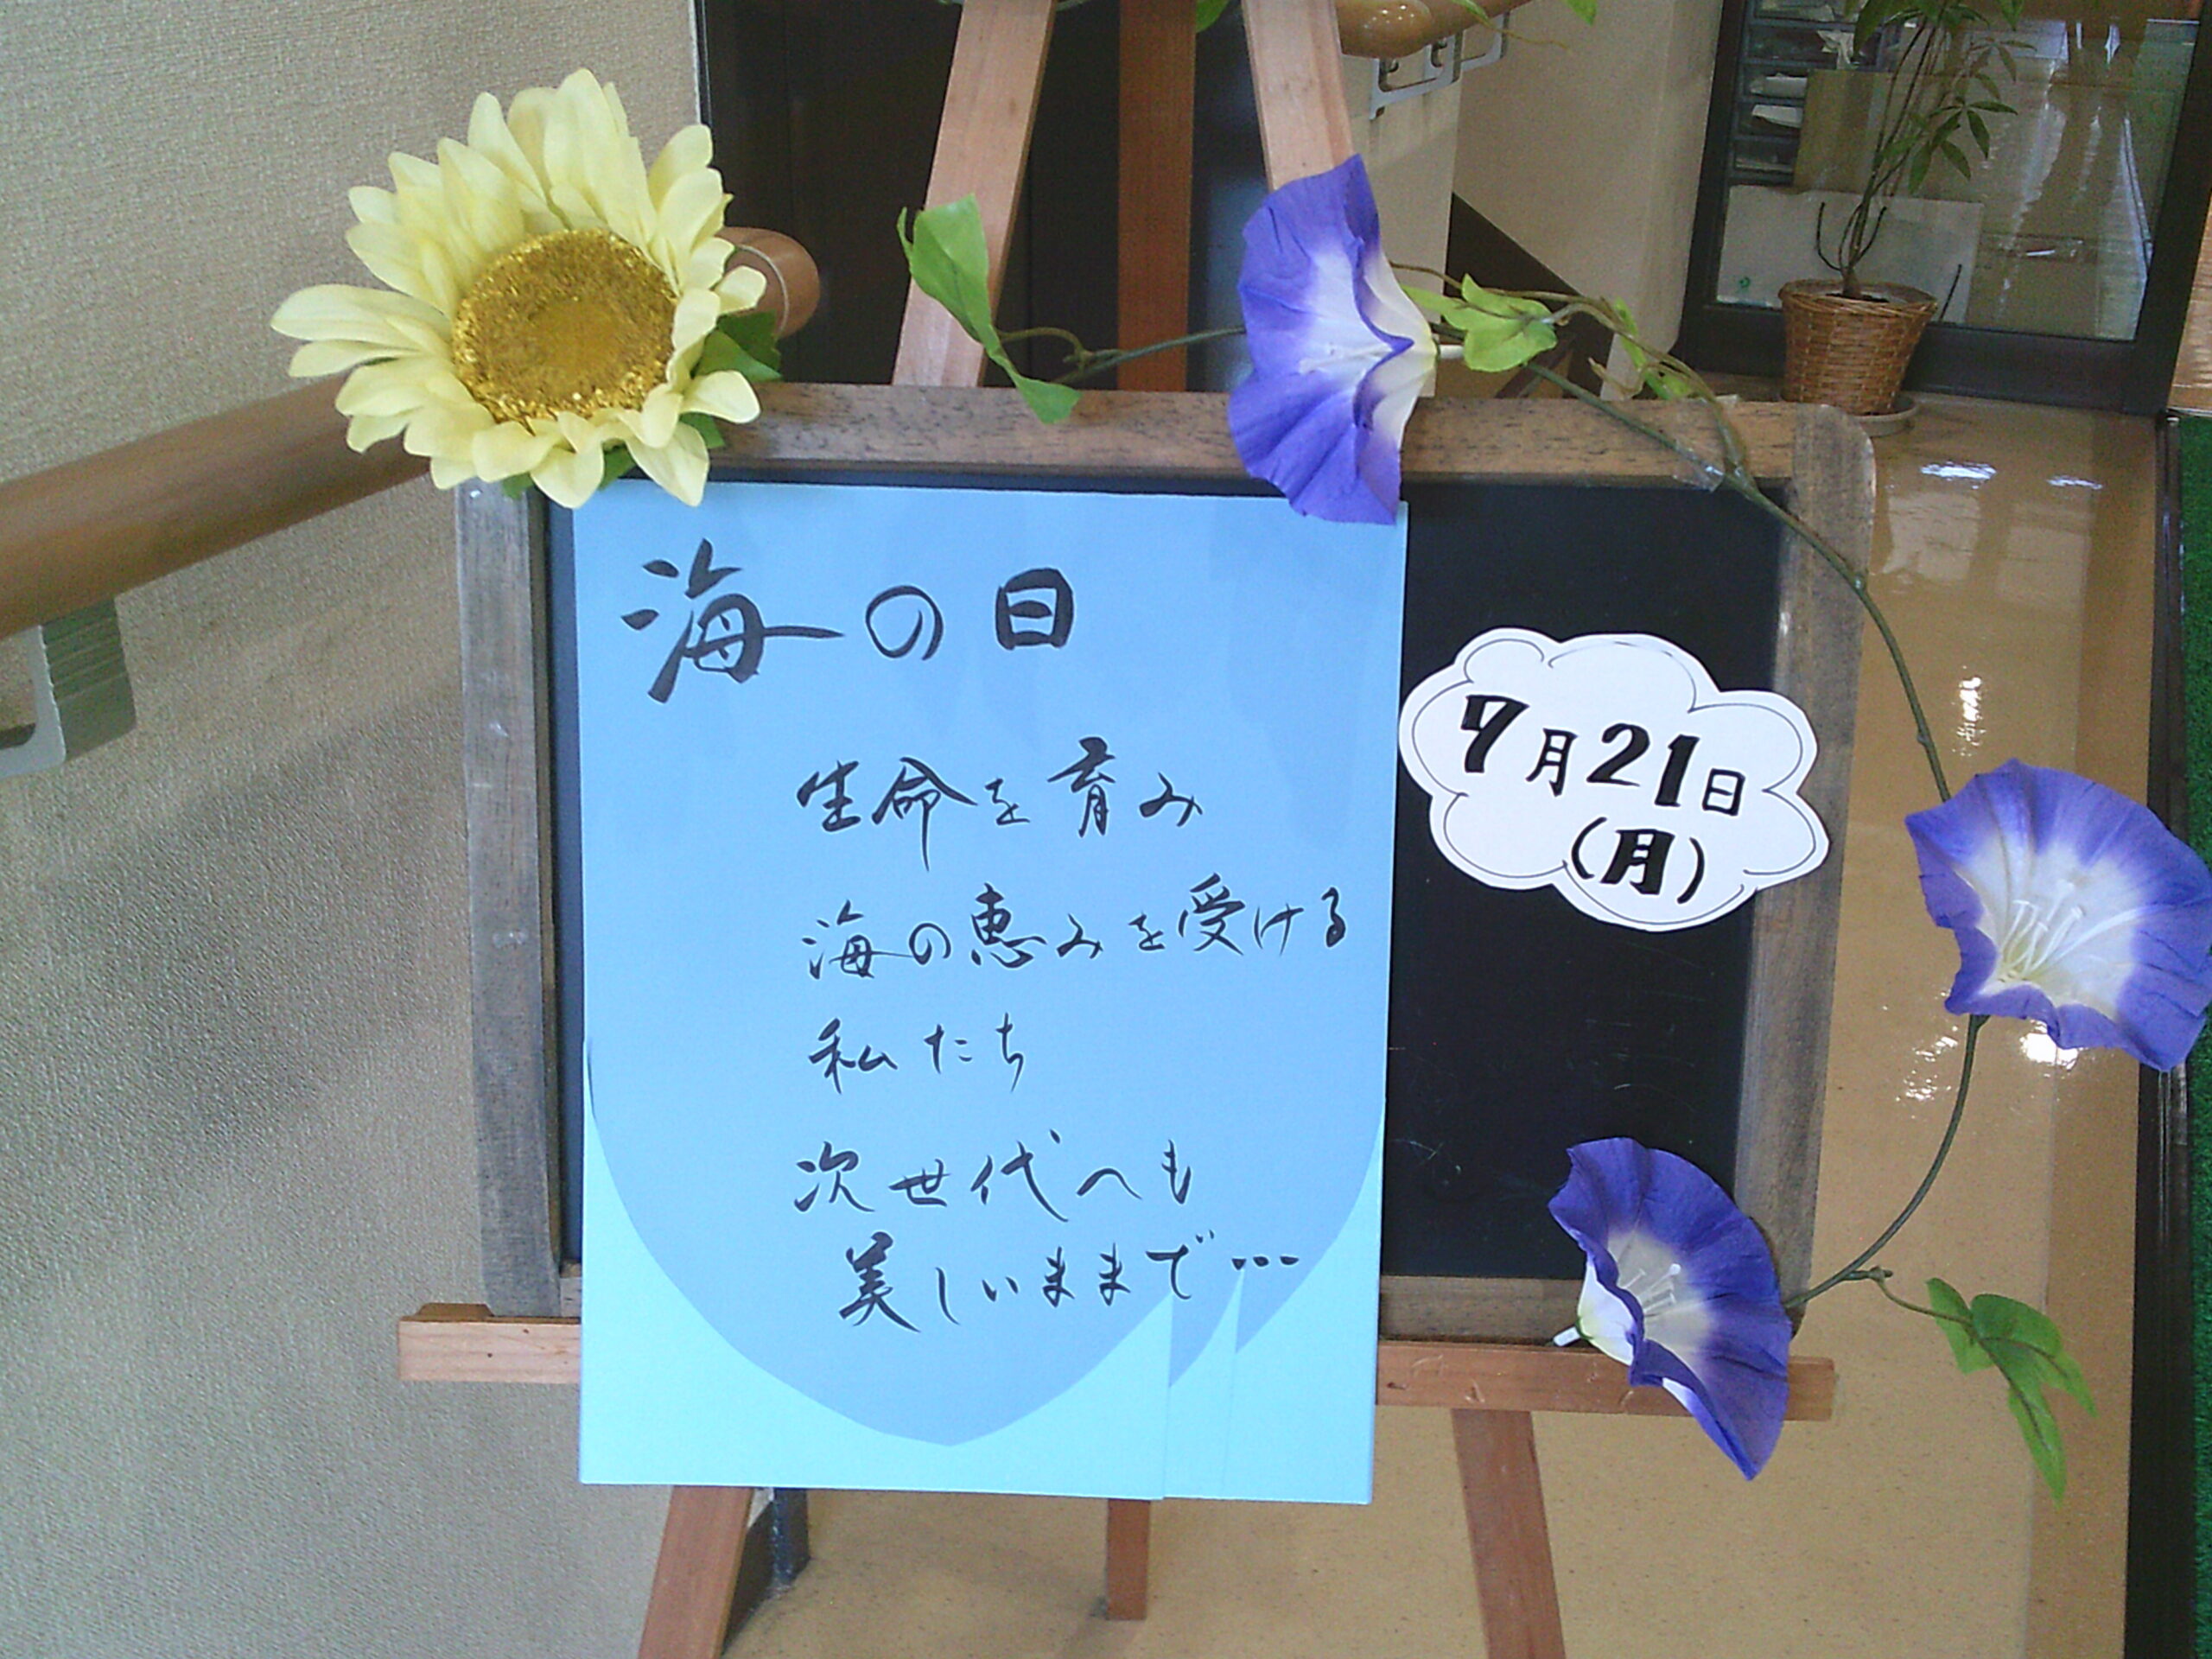 海の日
生命を育み
海の恵みを受ける
私たち
次世代へも
美しいままで…
7月21日
(月)